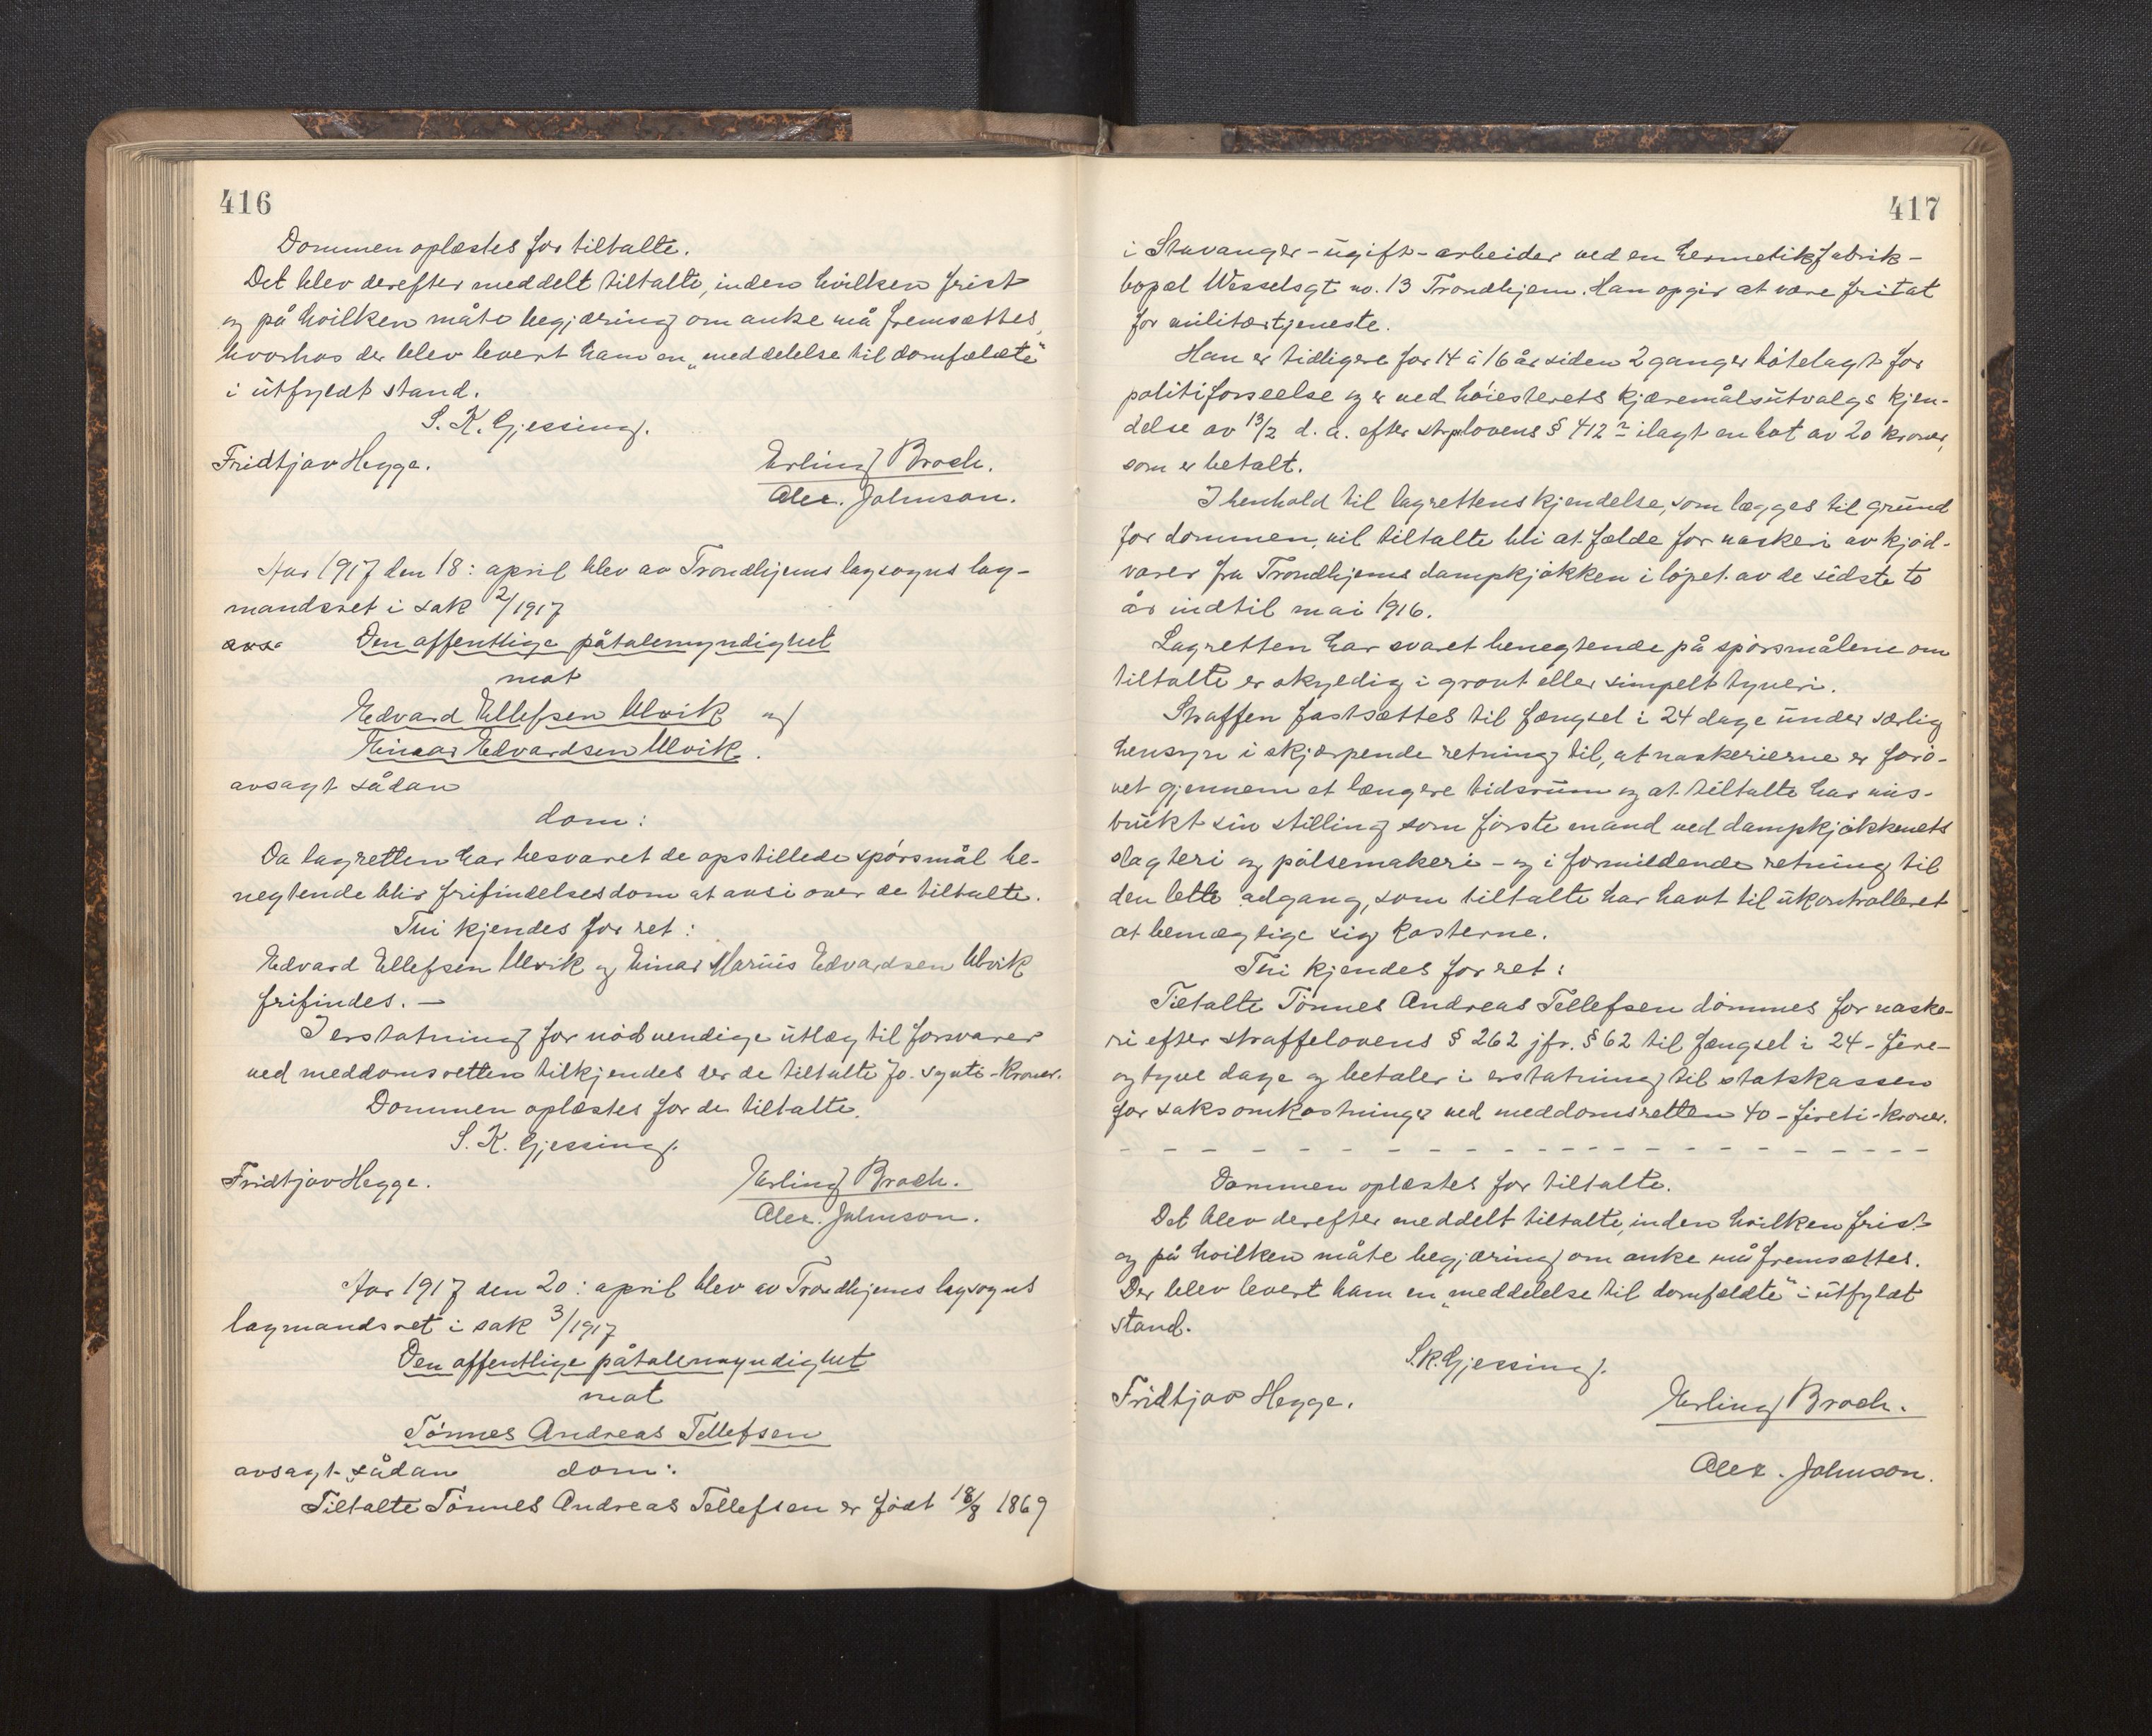 416
Dommen oplæstes for tiltalte.
Det blev derefter meddelt tiltalte, inden hvilken frist
og på hvilken måte begjæring om anke må fremsættes,
hvorhos der blev levert ham en „meddelelse til domfældte“
i utfyldt stand.
S. K. Gjessing.
Fridtjov Hegge. Erling Broch.
Alex. Johnson.
Aar 1917 den 18: april blev av Trondhjems lagsogns lag-
mandsret i sak 2/1917
Den offentlige påtalemyndighet
mot
Edvard Ellefsen Ulvik og
Einar Edvardsen Ulvik.
avsagt sådan
dom:
Da lagretten har besvaret de opstillede spørsmål be-
negtende blir frifindelsesdom at avsi over de tiltalte.
Thi kjendes for ret:
Edvard Ellefsen Ulvik og Einar Marius Edvardsen Ulvik
frifindes. —
I erstatning for nødvendige utlæg til forsvarer
ved meddomsretten tilkjendes der de tiltalte 70. sytti-kroner.
Dommen oplæstes for de tiltalte.
S. K. Gjessing.
Fridtjov Hegge. Erling Broch.
Alex. Johnson.
Aar 1917 den 20: april blev av Trondhjems lagsogns
lagmandsret i sak 3/1917
Den offentlige påtalemyndighet
mot
Tønnes Andreas Tellefsen
avsagt sådan dom:
Tiltalte Tønnes Andreas Tellefsen er født 18/8 1869
417
i Stavanger - ugift - arbeider ved en hermetikfabrik -
bopæl Wesselsgt no. 13 Trondhjem. Han opgir at være fritat
for militærtjeneste.
Han er tidligere for 14 à 16 år siden 2 ganger bøtelagt for
politiforseelse og er ved høiesterets kjæremålsutvalgs kjen-
delse av 13/2 d. a. efter strplovens § 412 ilagt en bot av 20 kroner,
som er betalt.
I henhold til lagrettens kjendelse, som lægges til grund
for dommen, vil tiltalte bli at fælde for naskeri av kjød-
varer fra Trondhjems dampkjøkken i løpet av de sidste to
år indtil mai 1916.
Lagretten har svaret benegtende på spørsmålene om
tiltalte er skyldig i grovt eller simpelt tyveri.
Straffen fastsættes til fængsel i 24 dage under særlig
hensyn i skjærpende retning til, at naskerierne er forø-
vet gjennem et længere tidsrum og at tiltalte har mis-
brukt sin stilling som første mand ved dampkjøkkenets
slagteri og pølsemakeri - og i formildende retning til
den lette adgang, som tiltalte har havt til ukontrolleret
at bemægtige sig kosterne.
Thi kjendes for ret:
Tiltalte Tønnes Andreas Tellefsen dømmes for naske-
ri efter straffelovens § 262 jfr. § 62 til fængsel i 24 - fire-
og tyve dage og betaler i erstatning til statskassen
for saksomkostninger ved meddomsretten 40 - firti - kroner.
- - - - - - - - - - - - - - - - - - - -
Dommen oplæstes for tiltalte.
Det blev derefter meddelt tiltalte, inden hvilken frist
og på hvilken måte begjæring om anke må fremsættes.
Der blev levert ham en „meddelelse til domfældte“ i utfyldt
stand.
S.K. Gjessing.
Fridtjov Hegge. Erling Broch.
Alex. Johnson.